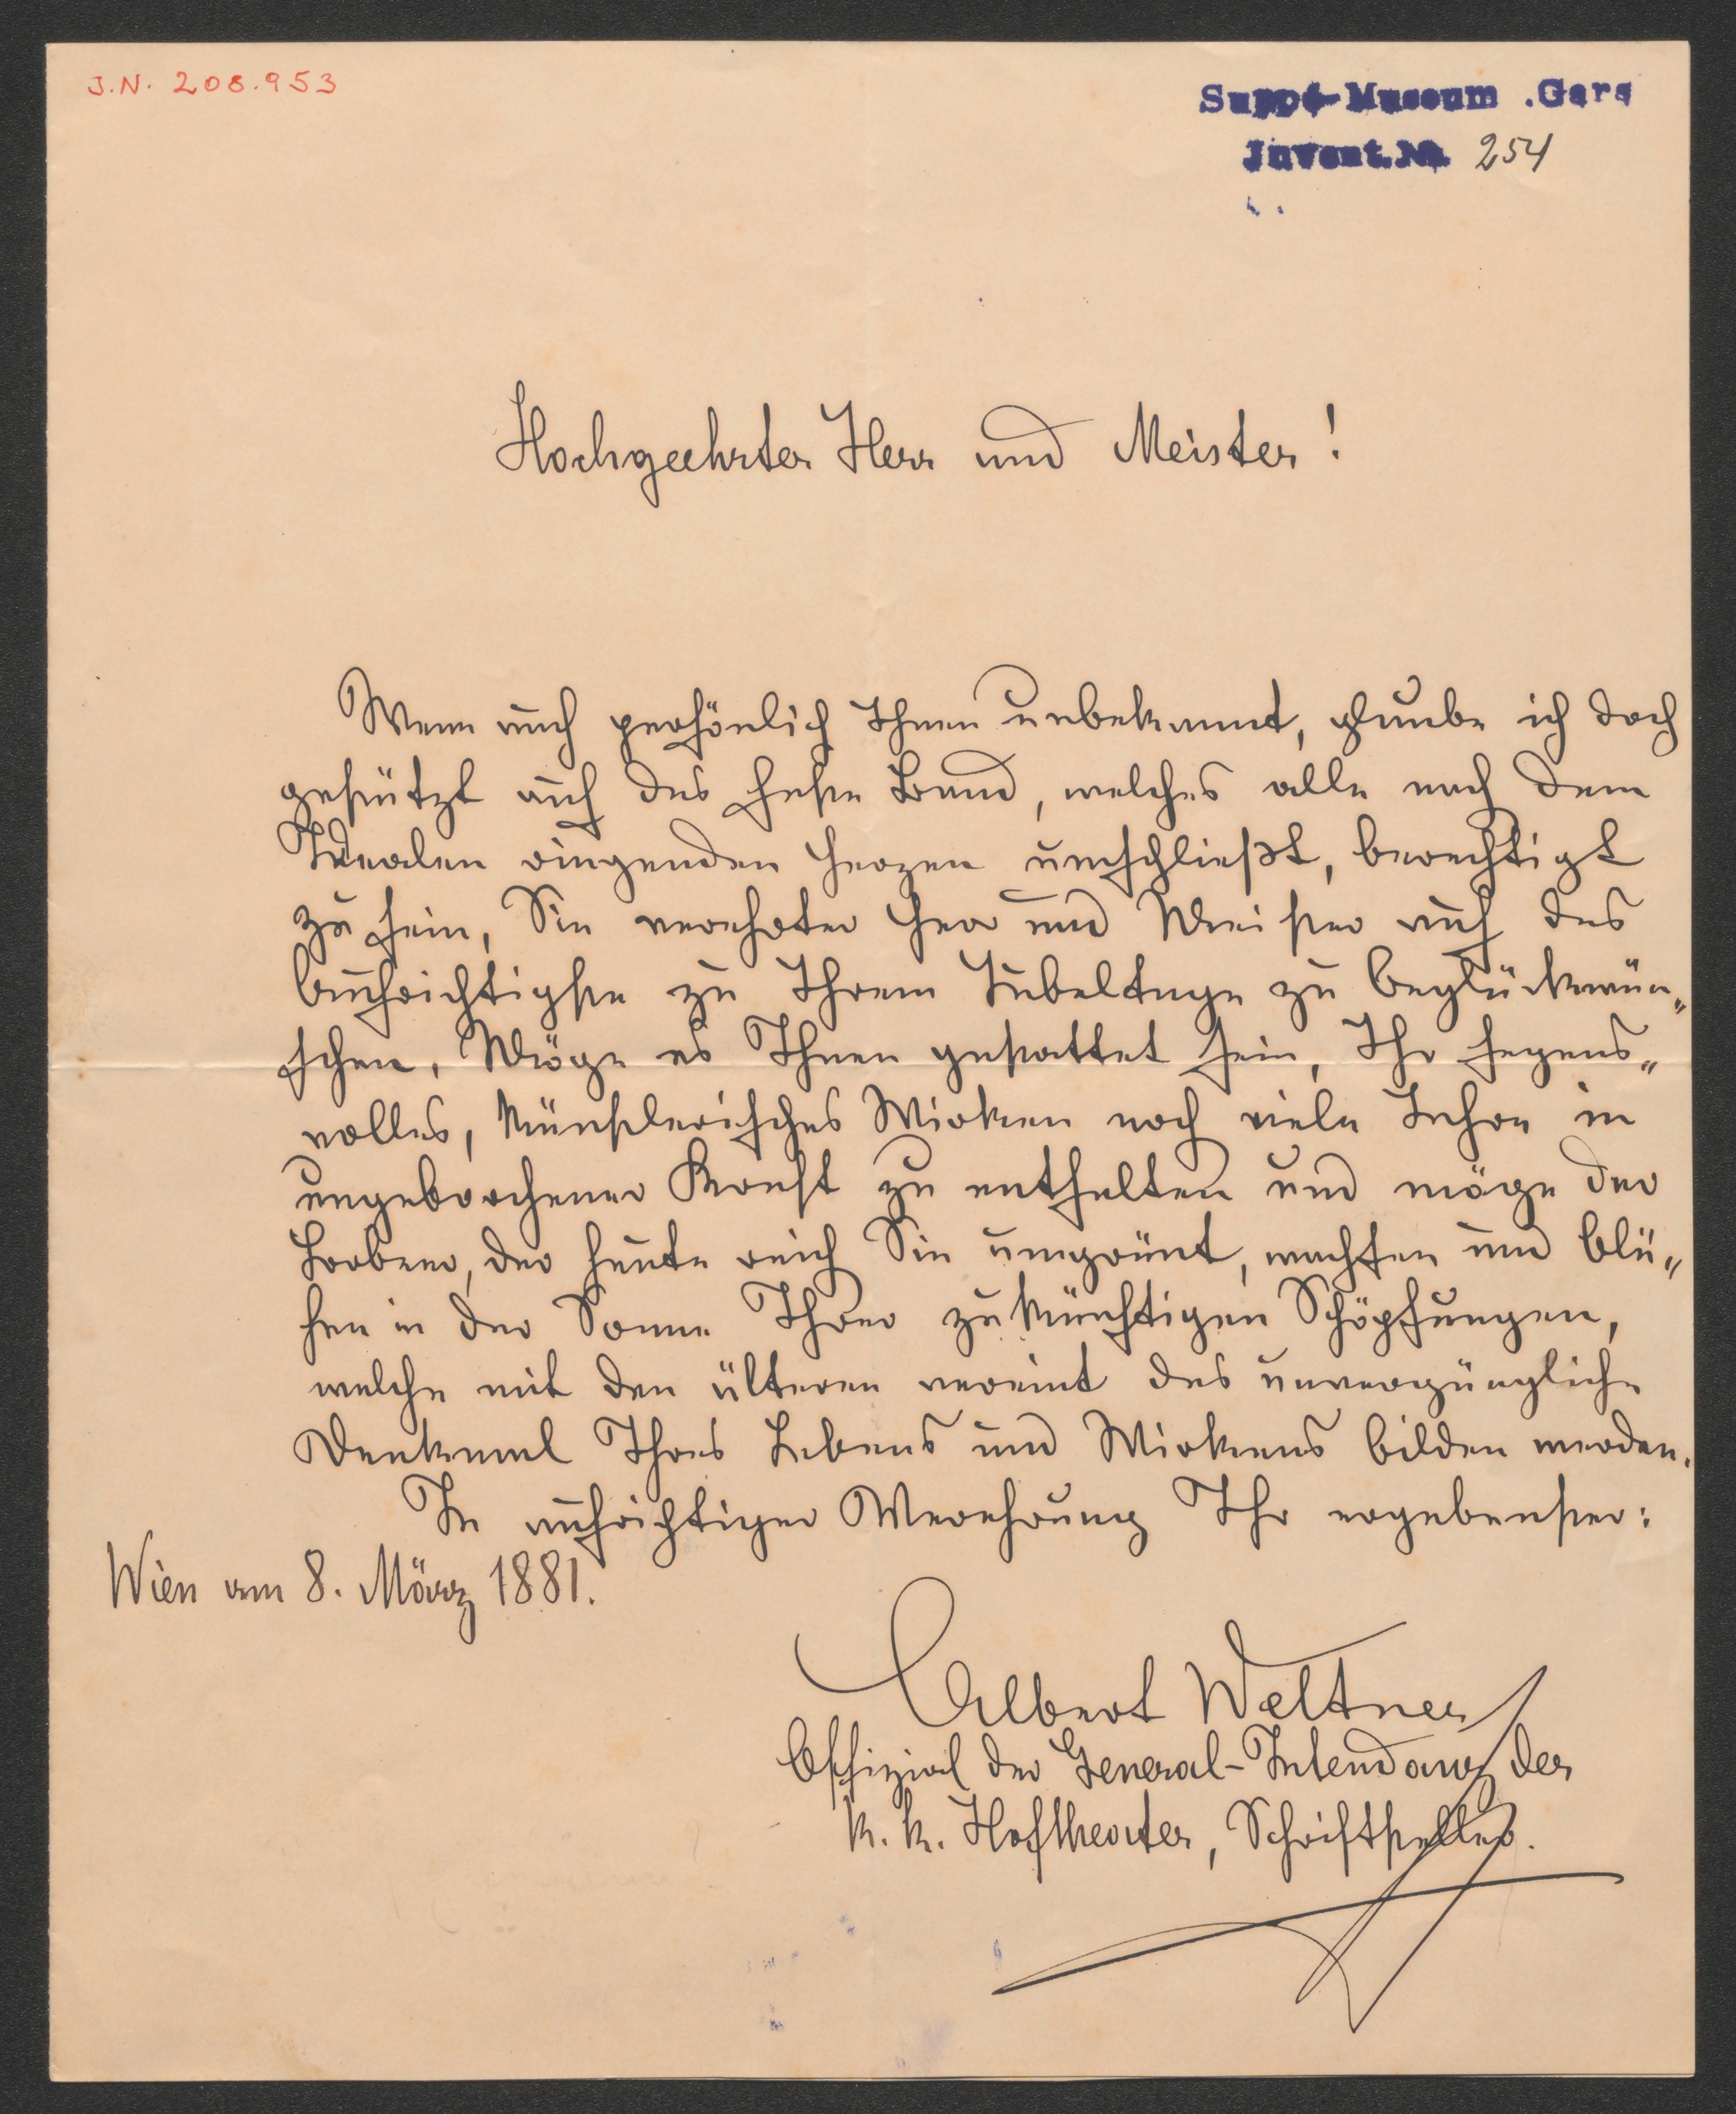 J.N. 208.953
Suppé-Museum .Gars
Invent.No. 254
Hochgeehrter Herr und Meister!
Wenn auch persönlich Ihnen unbekannt, glaube ich doch
gestützt auf das feste Band, welches alle nach dem
Idealen ringenden Herzen umschließt, berechtigt
zu sein, Sie verehrter Herr und Meister auf das
Aufrichtigste zu Ihrem Jubeltage zu beglückwün„
schen. Möge es Ihnen gestattet sein, Ihr segens„
volles, künstlerisches Wirken noch viele Jahre in
ungebrochener Kraft zu entfalten und möge der
Lorbeer, der heute reich Sie umgrünt, wachsen und blü„
hen in der Sonne Ihrer zukünftigen Schöpfungen,
welche mit den älteren vereint das unvergängliche
Denkmal Ihres Lebens und Wirkens bilden werden.
In aufrichtiger Verehrung Ihr ergebenster:
Wien am 8. März 1881.
Albert Weltner
Offizial der General-Intendanz der
k. k. Hoftheater, Schriftsteller.